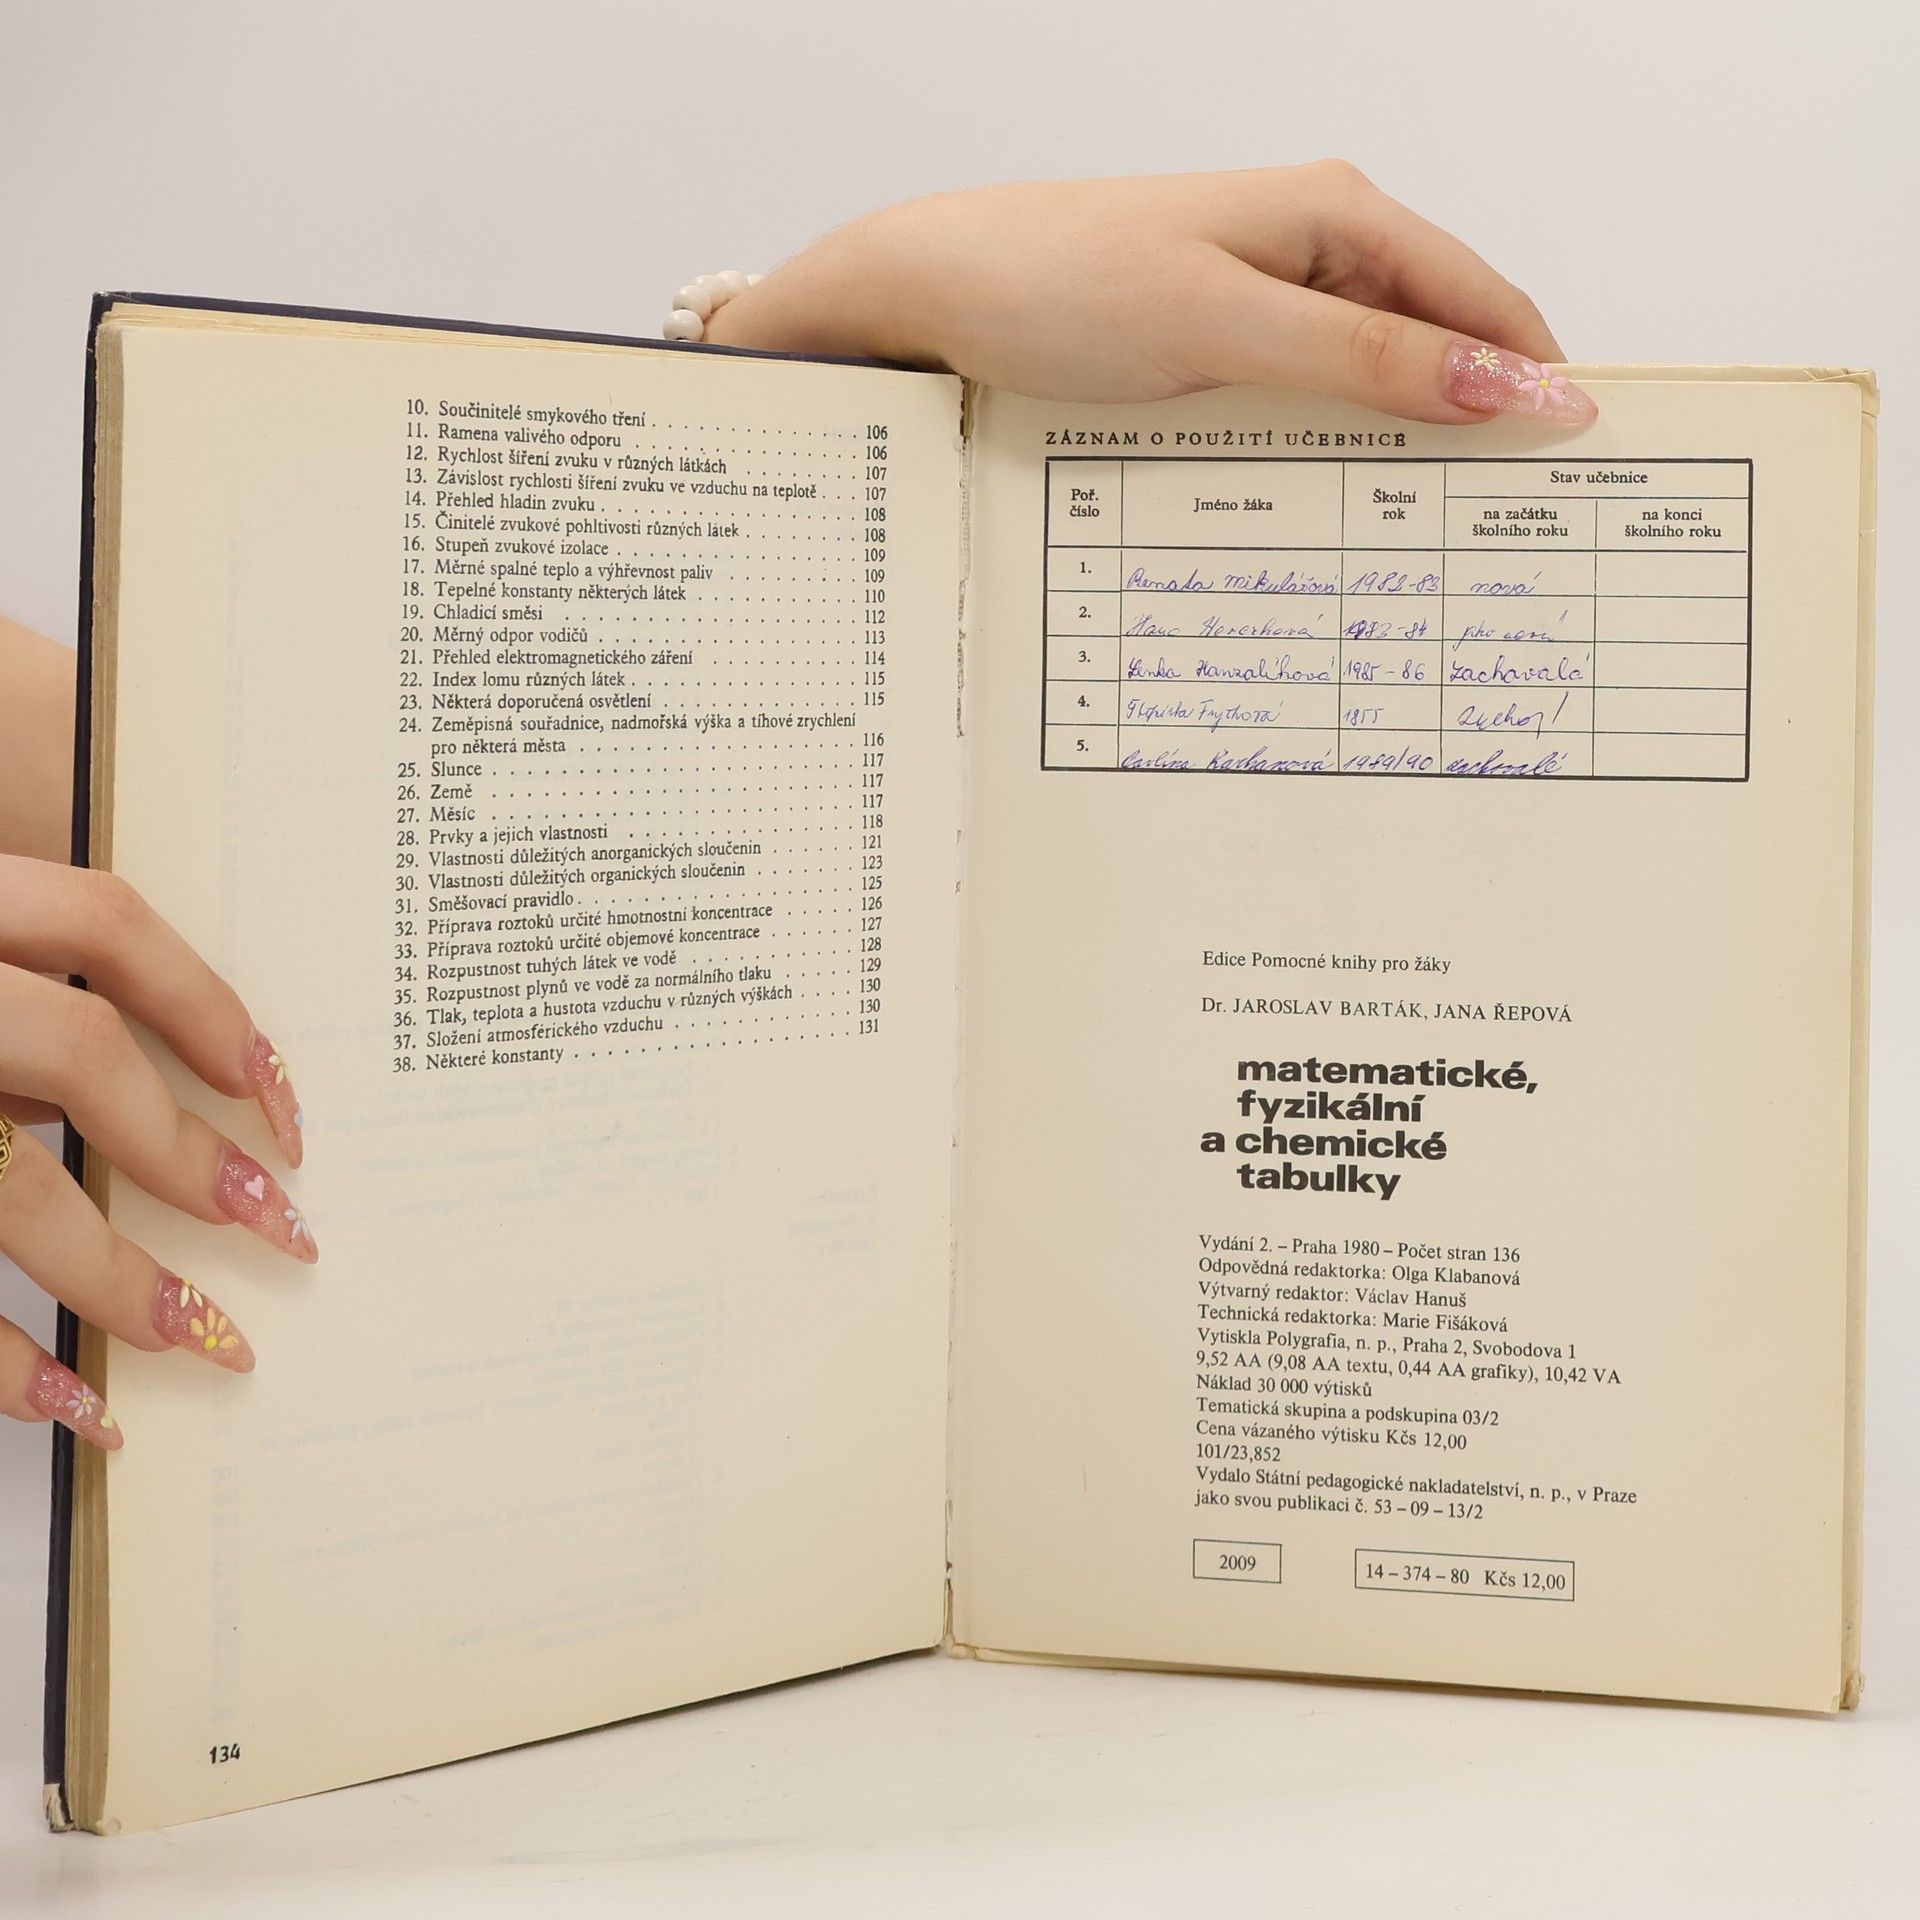 10. Součinitelé smykového tření . . . . . . . . . . . . . 106
11. Ramena valivého odporu . . . . . . . . . . . . . 106
12. Rychlost šíření zvuku v různých látkách . . . . . . . 107
13. Závislost rychlosti šíření zvuku ve vzduchu na teplotě . . . 107
14. Přehled hladin zvuku . . . . . . . . . . . . . . . 108
15. Činitelé zvukové pohltivosti různých látek . . . . . . . 108
16. Stupeň zvukové izolace . . . . . . . . . . . . . . 109
17. Měrné spalné teplo a výhřevnost paliv . . . . . . . . 109
18. Tepelné konstanty některých látek . . . . . . . . . . 110
19. Chladicí směsi . . . . . . . . . . . . . . . . . 112
20. Měrný odpor vodičů . . . . . . . . . . . . . . . 113
21. Přehled elektromagnetického záření . . . . . . . . . 114
22. Index lomu různých látek . . . . . . . . . . . . . 115
23. Některá doporučená osvětlení . . . . . . . . . . . . 115
24. Zeměpisná souřadnice, nadmořská výška a tíhové zrychlení
pro některá města . . . . . . . . . . . . . . . . 116
25. Slunce . . . . . . . . . . . . . . . . . . . . 117
26. Země . . . . . . . . . . . . . . . . . . . . 117
27. Měsíc . . . . . . . . . . . . . . . . . . . . 117
28. Prvky a jejich vlastnosti . . . . . . . . . . . . . 118
29. Vlastnosti důležitých anorganických sloučenin . . . . . . 121
30. Vlastnosti důležitých organických sloučenin . . . . . . . 123
31. Směšovací pravidlo . . . . . . . . . . . . . . . 125
32. Příprava roztoků určité hmotnostní koncentrace . . . . . 126
33. Příprava roztoků určité objemové koncentrace . . . . . . 127
34. Rozpustnost tuhých látek ve vodě . . . . . . . . . . 128
35. Rozpustnost plynů ve vodě za normálního tlaku . . . . . 129
36. Tlak, teplota a hustota vzduchu v různých výškách . . . . 130
37. Složení atmosférického vzduchu . . . . . . . . . . . 130
38. Některé konstanty . . . . . . . . . . . . . . . . 131
134
ZÁZNAM O POUŽITÍ UČEBNICE
Poř. číslo Jméno žáka Školní rok Stav učebnice
na začátku školního roku na konci školního roku
1. Renata Mikulášová 1982-83 nová
2. Hana 1983-84
3. Lenka Hanzalíková 1985-86 zachovalá
4. 1855
5. Karhanová 1989/90 zachovalé
Edice Pomocné knihy pro žáky
Dr. JAROSLAV BARTÁK, JANA ŘEPOVÁ
matematické,
fyzikální
a chemické
tabulky
Vydání 2. – Praha 1980 – Počet stran 136
Odpovědná redaktorka: Olga Klabanová
Výtvarný redaktor: Václav Hanuš
Technická redaktorka: Marie Fišáková
Vytiskla Polygrafia, n. p., Praha 2, Svobodova 1
9,52 AA (9,08 AA textu, 0,44 AA grafiky), 10,42 VA
Náklad 30 000 výtisků
Tematická skupina a podskupina 03/2
Cena vázaného výtisku Kčs 12,00
101/23,852
Vydalo Státní pedagogické nakladatelství, n. p., v Praze
jako svou publikaci č. 53 – 09 – 13/2
2009 14 – 374 – 80 Kčs 12,00